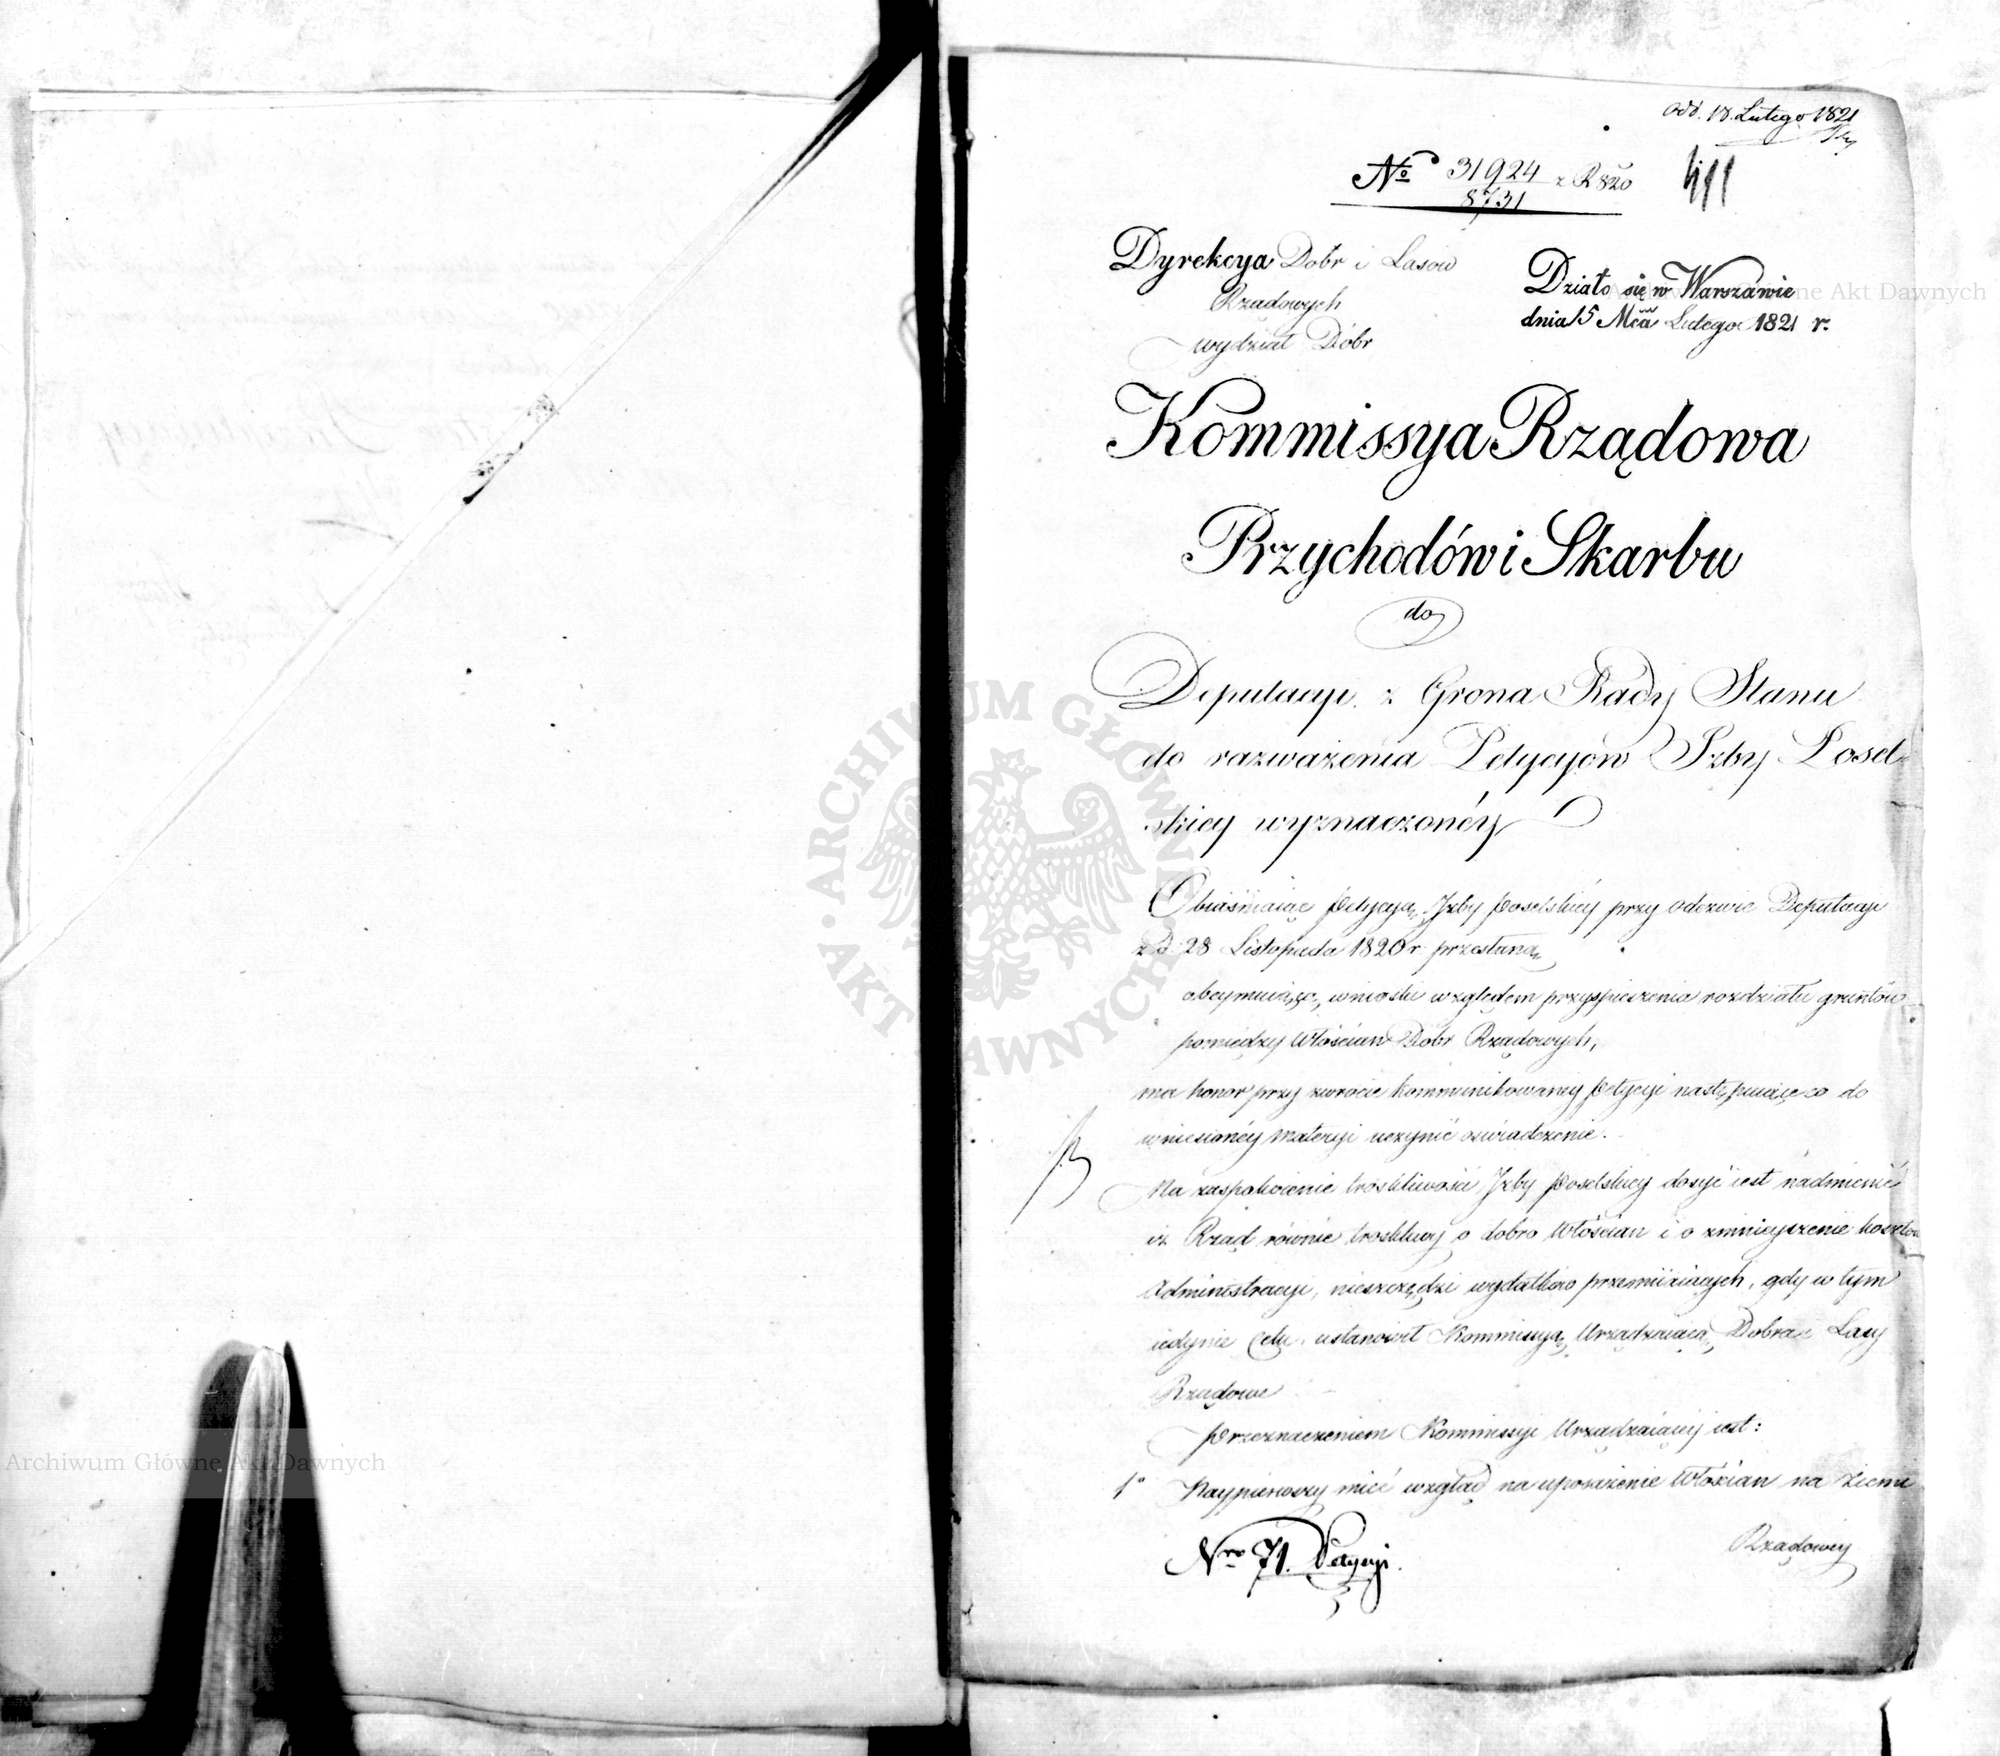 odd. 18. Lutego 1821
No 31924 / 8731 z R 820
411
Dyrekcya Dobr i Lasow
Rządowych
wydział Dóbr
Działo się w Warszawie
dnia 15 Mca Lutego 1821 r.
Kommissya Rządowa
Przychodów i Skarbu
do
Deputacyi z Grona Rady Stanu
do rozważenia Petycyów Izby Posel-
skiey wyznaczonéy
Obiaśniaiąc Petycyą Izby Poselskiéy przy odezwie Deputacyi
z D. 28 Listopada 1820 r przesłaną
obeymuiącą, wnioski względem przyspieszenia rozdziału gruntów
pomiędzy Włościan Dóbr Rządowych,
ma honor przy zwrocie kommunikowaney Petycyi następuiące co do
wniesionéy materyi uczynić oświadczenie.
Na zaspokoienie troskliwości Izby Poselskiey dosyć iest nadmienić
iż Rząd równie troskliwy o dobro Włościan i o zmnieyszenie kosztów
Administracyi, nieszczędzi wydatków przemiiaiących, gdy w tym
iedynie Celu ustanowił Kommissyą Urządzaiącą Dobra i Lasy
Rządowe
Przeznaczeniem Kommissyi Urządzaiącéy iest:
1° Naypierwszy mieć wzgląd na uposażenie Włościan na ziemi
Rządowéy
Nro 71. Petycyi.
Archiwum Główne Akt Dawnych
Archiwum Główne Akt Dawnych
ARCHIWUM GŁÓWNE AKT DAWNYCH